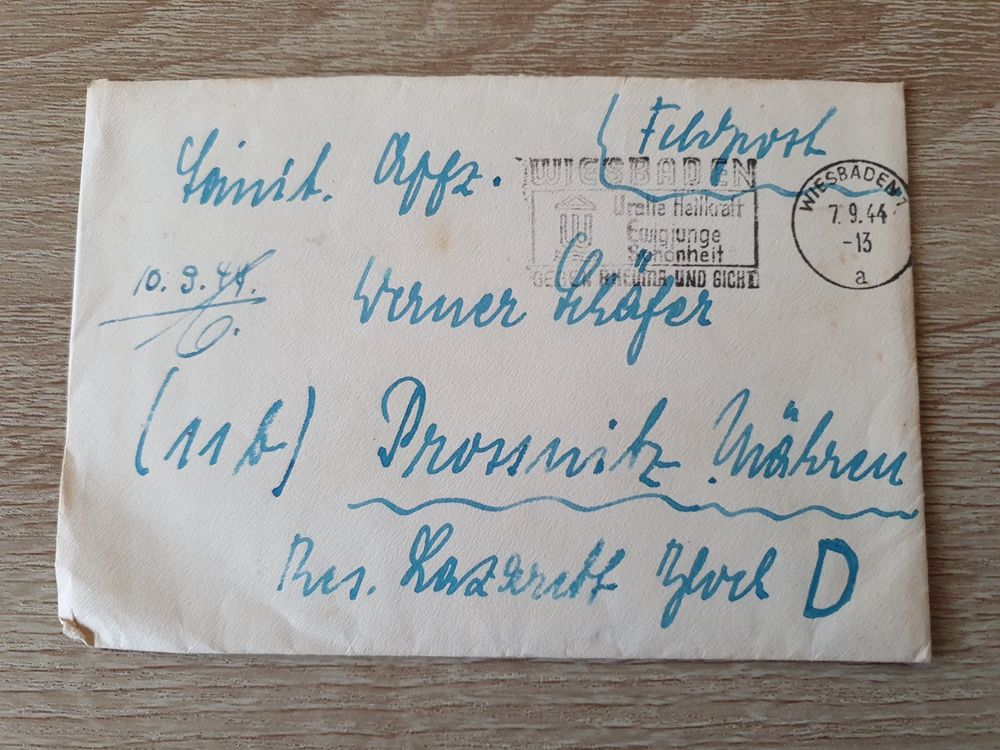 Feldpost
Sanit. Uffz.
WIESBADEN
Uralte Heilkraft
Ewigjunge
Schönheit
GEGEN RHEUMA UND GICHT
WIESBADEN 1
7.9.44
-13
a
10.9.44.
Werner Schäfer
(11b) Prossnitz Mähren
Res. Lazarett Block D